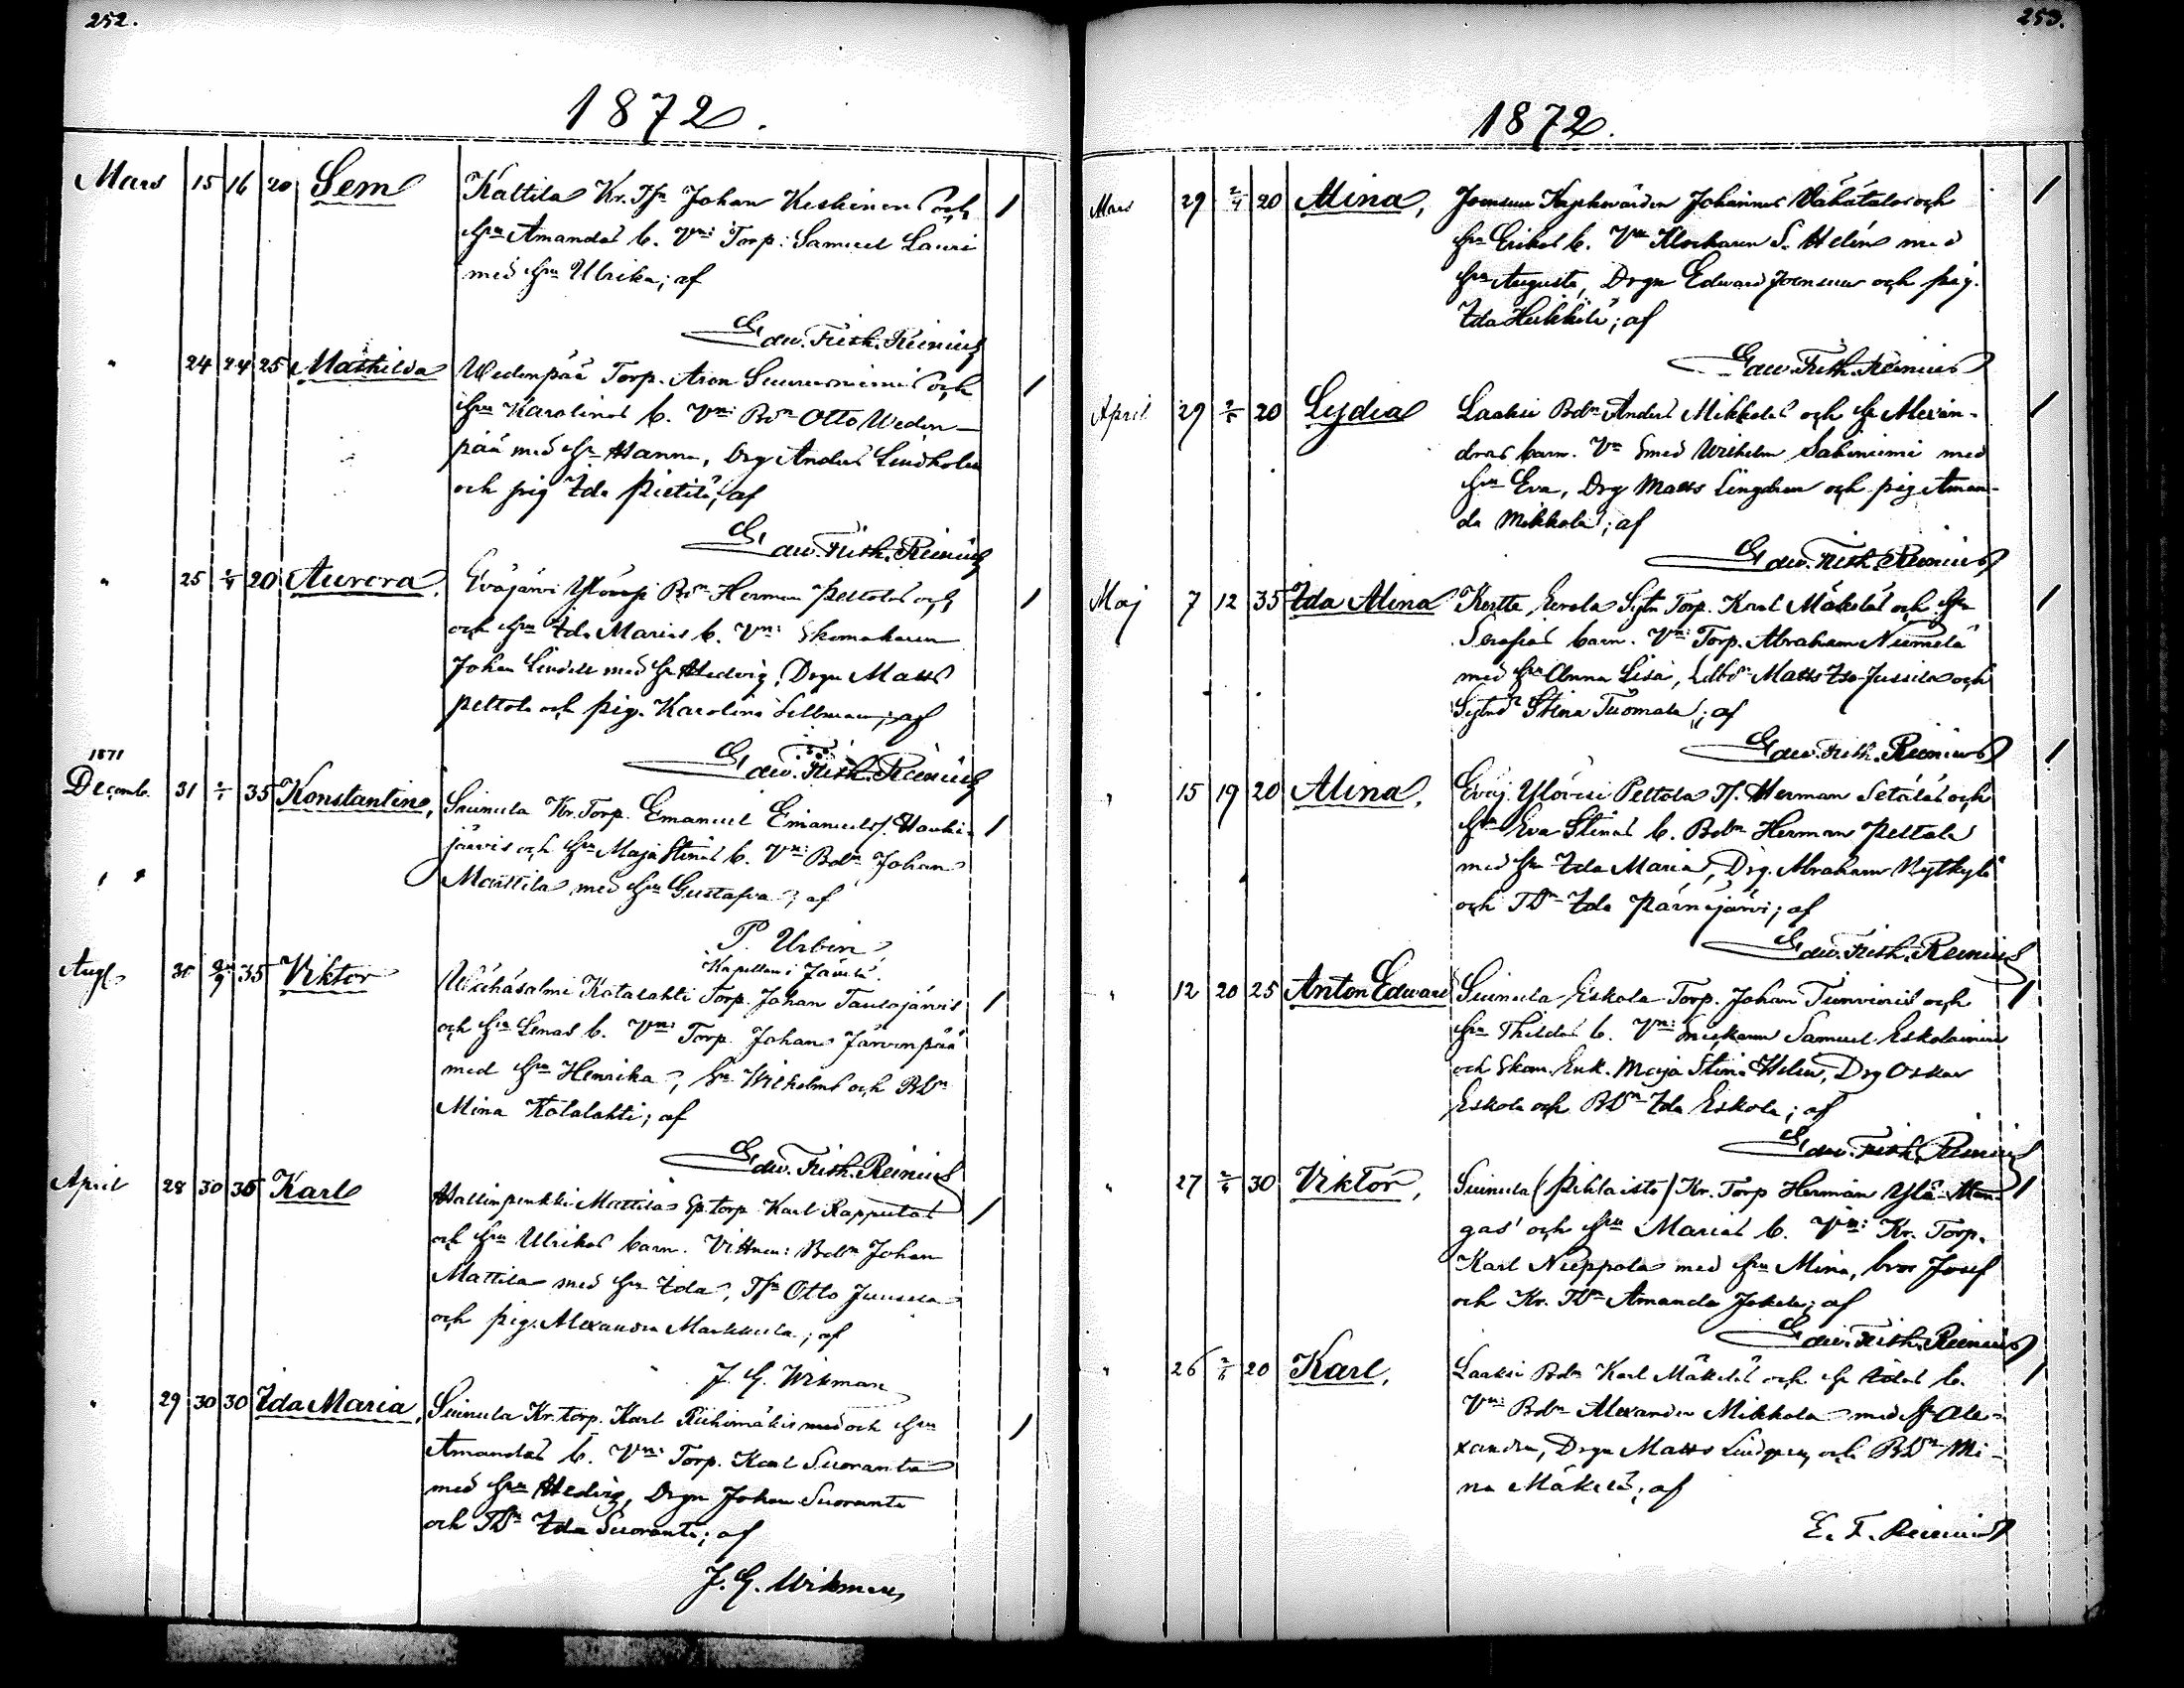 252.
1872.
Mars 15 16 20 Sem Kattila Kr. Tfn Johan Keskinens och
hu Amandas b. Vn: Torp. Samuel Lauri
med hu Ulrika; af
Edw. Frith. Reinius
" 24 24 25 Mathilda Wedenpää Torp. Aron Suuruniemis och
hu Karolinas b. Vn: Bdn Otto Weden-
pää med hu Hanna, Drg Anders Lindholm
och pig Ida Pietilä; af
Edw. Frith. Reinius
" 25 2/4 20 Aurora, Eväjärvi Bdn Herman Peltolas och
och hu Ida Marias b. Vn: Skomakaren
Johan Lindell med hu Hedvig, Drgn Matts
Peltola och pig. Karolina Sellman; af
Edw. Frith. Reinius
1871
Decemb. 31 2/1 35 Konstantin, Suinula Kr. Torp. Emanuel Emanuelsf. Hauki-
järvis och hu Maja Stinas b. Vn: Bdn Johan
Mattila med hu Gustafva; af
P. Urbin
Kapellan i Jämsä.
Aug. 35 Viktor Wähäsalmi Kotalahti Torp. Johan Taulajärvis
och hu Lenas b. Vn: Torp. Johan Järvenpää
med hu Henrika, Wilhelm och BDn
Mina Kotalahti; af
Edw. Frith. Reinius
April 28 30 35 Karl Hallinpenkki Mattilas Sp. torp. Karl Rapputas
och hu Ulrikas barn. Vittnen: Bdn Johan
Mattila med hu Ida, Tfn Otto Juusela
och pig. Alexandra Markkula; af
J. G. Wikman
" 29 30 30 Ida Maria, Suinula Kr. torp. Karl Riihimäkis med och hu
Amandas b. Vn: Torp. Karl Suoranta
med hu Hedvig, Drgn Johan Suoranta
och TDn Ida Suoranta; af
J. G. Wikman
253.
1872.
Mars 29 2/4 20 Alina, Joensuu Johannes Vähätalos och
hu Erikas b. Vn Klockaren S. Helin med
hu Augusta, Drgn Edward Joensuu och pig.
Ida Heikkilä; af
Edw. Frith. Reinius
April 29 20 Lydia Laaksi Bdn Anders Mikkolas och hu Alexan-
dras barn. Vn Smed Wilhelm Saliniemi med
hu Eva, Drg Matts Lingdren och pig Aman-
da Mikkola; af
Edw. Frith. Reinius
Maj 7 12 35 Ida Alina Kertte Eerola Sytn Torp. Karl Mäkeläs och hu
Serafias barn. Vn: Torp. Abraham Niemelä
med hu Anna Lisa, Matts Iso-Jussila och
Stina Tuomala; af
Edw. Frith. Reinius
" 15 19 20 Alina, Eväj. Peltola Tf. Herman Setäläs och
hu Eva Stinas b. Bdn Herman Peltola
med hu Ida Maria, Drg. Abraham Nytkylä
och TDn Ida Pärnäjärvi; af
Edw. Frith. Reinius
" 12 20 25 Anton Edward Suinula Eskola Torp. Johan Tunvinis och
hu Thildas b. Vn: Samuel Eskolainen
och Skom. Enk. Maja Stina Helin, Drg Oskar
Eskola och BDn Ida Eskola; af
Edw. Frith. Reinius
" 27 2/6 30 Viktor, Suinula (Pihlaisto) Kr. Torp Herman Ylä-Man-
gas' och hu Marias b. Vn: Kr. Torp.
Karl Nieppola med hu Mina, bror Josef
och Kr. TDn Amanda Jokela; af
Edw. Frith. Reinius
" 26 2/6 20 Karl, Laaksi Bdn Karl Mäkeläs och hu Idas b.
Vn: Bdn Alexander Mikkola med hu Ale-
xandra, Drgn Matts Lindgren och BDn Mi-
na Mäkelä; af
E. F. Reinius